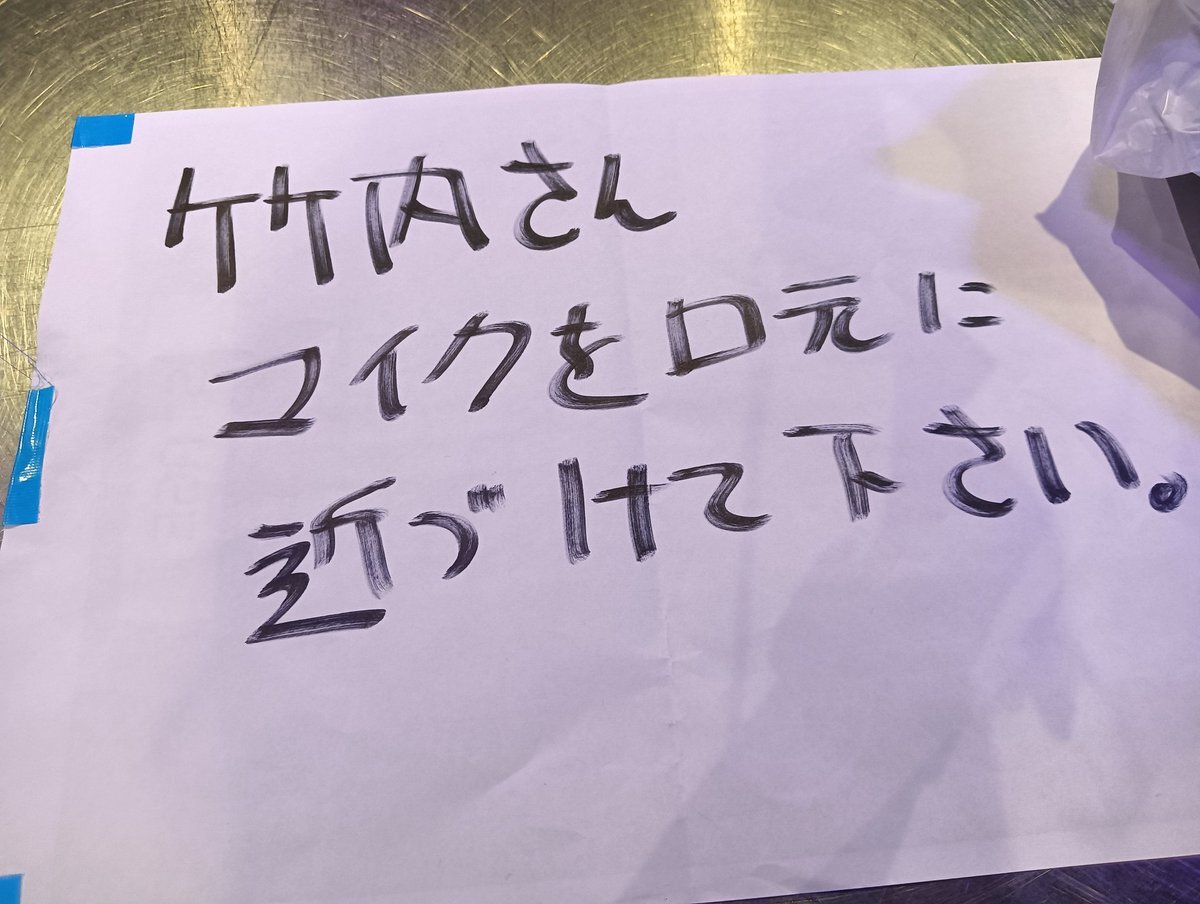 竹内さん
マイクを口元に
近づけて下さい。